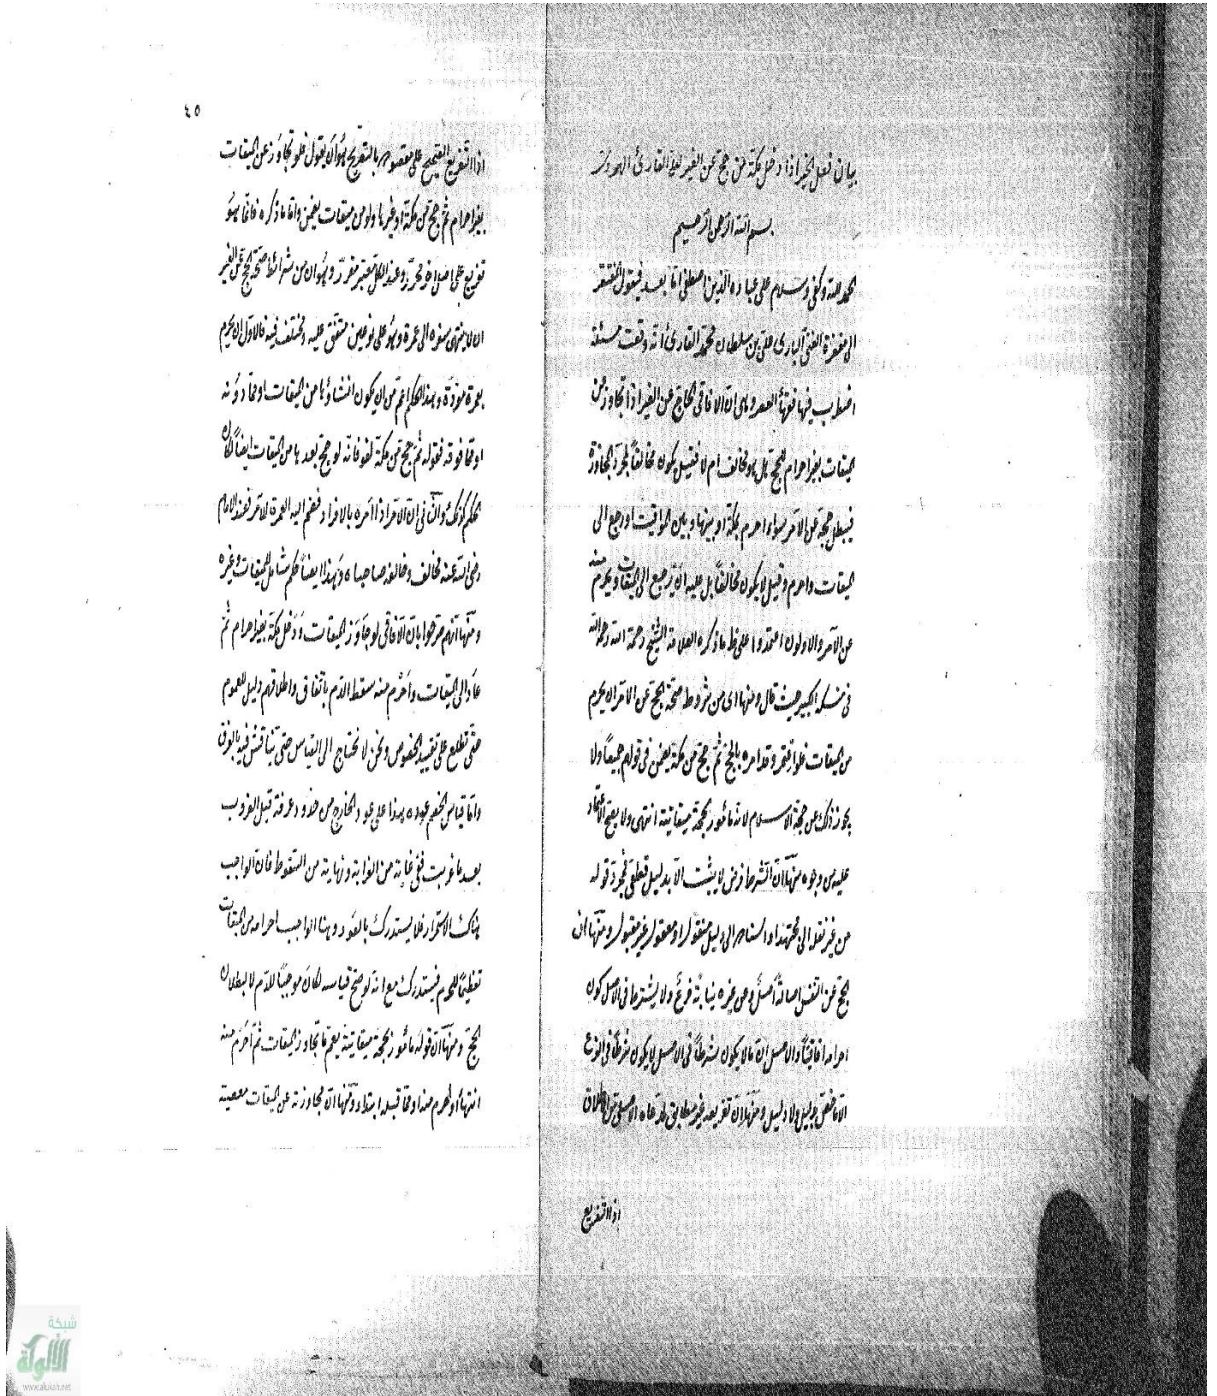 بيان فعل الخير اذا دخل مكة من حج عن الغير لعلي القارئ الهروي
بسم الله الرحمن الرحيم
الحمد لله وكفى وسلام على عباده الذين اصطفى اما بعد فيقول المفتقر
الى مغفرة الغني الباري علي بن سلطان محمد القارئ انه وقعت مسئلة
اضطرب فيها فقهاء العصر وهي ان الافاقي الحاج عن الغير اذا تجاوز عن
الميقات بغير احرام للحج هل هو مخالف ام لا فقيل يكون مخالفاً لمجرد المجاوزة
فيبطل حجه عن الآمر سواء احرم بمكة او بينها وبين المواقيت او رجع الى
الميقات واحرم وقيل لا يكون مخالفاً بل عليه ان يرجع الى الميقات ويحرم منه
عن الآمر والاولون اعتمدوا على ظ ما ذكره العلامة الشيخ رحمة الله رحمه الله
في منسكه الكبير حيث قال ومنها اى من شروط صحة الحج عن الآمر ان يحرم
من الميقات فلو اعتمر وقد امره بالحج ثم حج من مكة يضمن في قولهم جميعاً ولا
يجوز ذلك عن حجة الاسلام لانه مأمور بحجة ميقاتية انتهى ولا يصح الاعتماد
عليه من وجوه منها ان الشرط فرض لا يثبت الا بدليل قطعي فمجرد قوله
من غير نقل الى مجتهد او استناد الى دليل منقول او معقول غير مقبول ومنها ان
الحج عن النفس اصالة اصل وعن غيره نيابة فرع ولا يشترط في الاصل كون
احرامه افاقياً والاصل ان ما لا يكون شرطاً في الاصل لا يكون شرطاً في الفرع
الا ما خص بدليل ولا دليل ومنها ان تفريعه غير مطابق لمدعاه الاصلي من اطلاق
اذ التفريع
٤٥
اذ التفريع الصحيح على مقصوده بالتصريح هو ان يقول فلو تجاوز عن الميقات
بغير احرام ثم حج من مكة او غيرها ولو من ميقات يضمن واما ما ذكره فانما هو
تفريع على اصل اخر محرر وعند الكل معتبر مقرر وهو ان من شرائط صحة الحج عن الغير
ان لا ينتهى سفره الى عمرة وهو على نوعين متفق عليه ومختلف فيه فالاول ان يحرم
بعمرة مفردة وبهذا الحكم اعم من ان يكون انشاؤها من الميقات او مما دونه
او مما فوقه فقوله ثم حج من مكة لغو فانه لو حج بعدها من الميقات ايضاً لكان
الحكم كذلك والثاني ان الآمر اذا امره بالافراد فضم اليه العمرة للآمر فعند الامام
رضى الله عنه مخالف وخالفه صاحباه وبهذا ايضاً حكم شامل للميقات وغيره
ومنها انهم صرحوا بان الآفاقى لو جاوز الميقات ودخل مكة بغير احرام ثم
عاد الى الميقات واحرم منه سقط الدم باتفاق واطلاقهم دليل للعموم
حتى تطلع على تقييد الخصوص ونحن لا نحتاج الى القياس حتى يناقش فيه بالفرق
واما قياس الخصم عوده بهذا على عود الخارج من حدود عرفة قبل الغروب
بعد ما غربت ففى غاية من الغرابة ونهاية من السقوط فان الواجب
هناك الاستمرار فلا يستدرك بالعود وهنا الواجب احرامه من الميقات
تعظيماً للحرم فيستدرك مع انه لو صح قياسه لكان موجباً للدم لا لبطلان
الحج ومنها ان قوله مأمور بحجة ميقاتية يعم ما تجاوز الميقات ثم احرم منه
انتهاء او احرم منه او مما قبله ابتداء ومنها ان مجاوزته عن الميقات معصية
شبكة
الألوكة
www.alukah.net